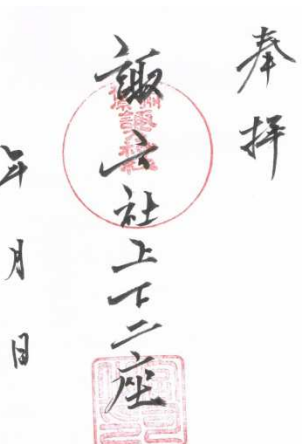 奉拝
諏方社上下二座
年月日